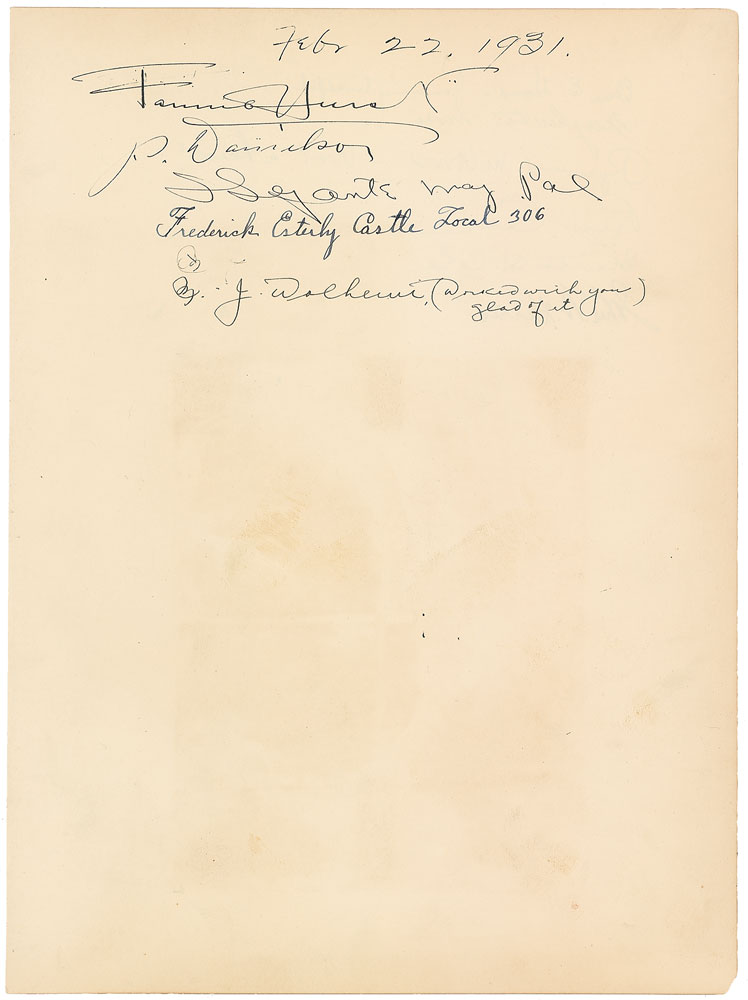 Feb 22, 1931.
Fannie Hurst
P. Danielson
may Pal
Frederick Esterly Castle Local 306
J. (Worked with you)
glad of it